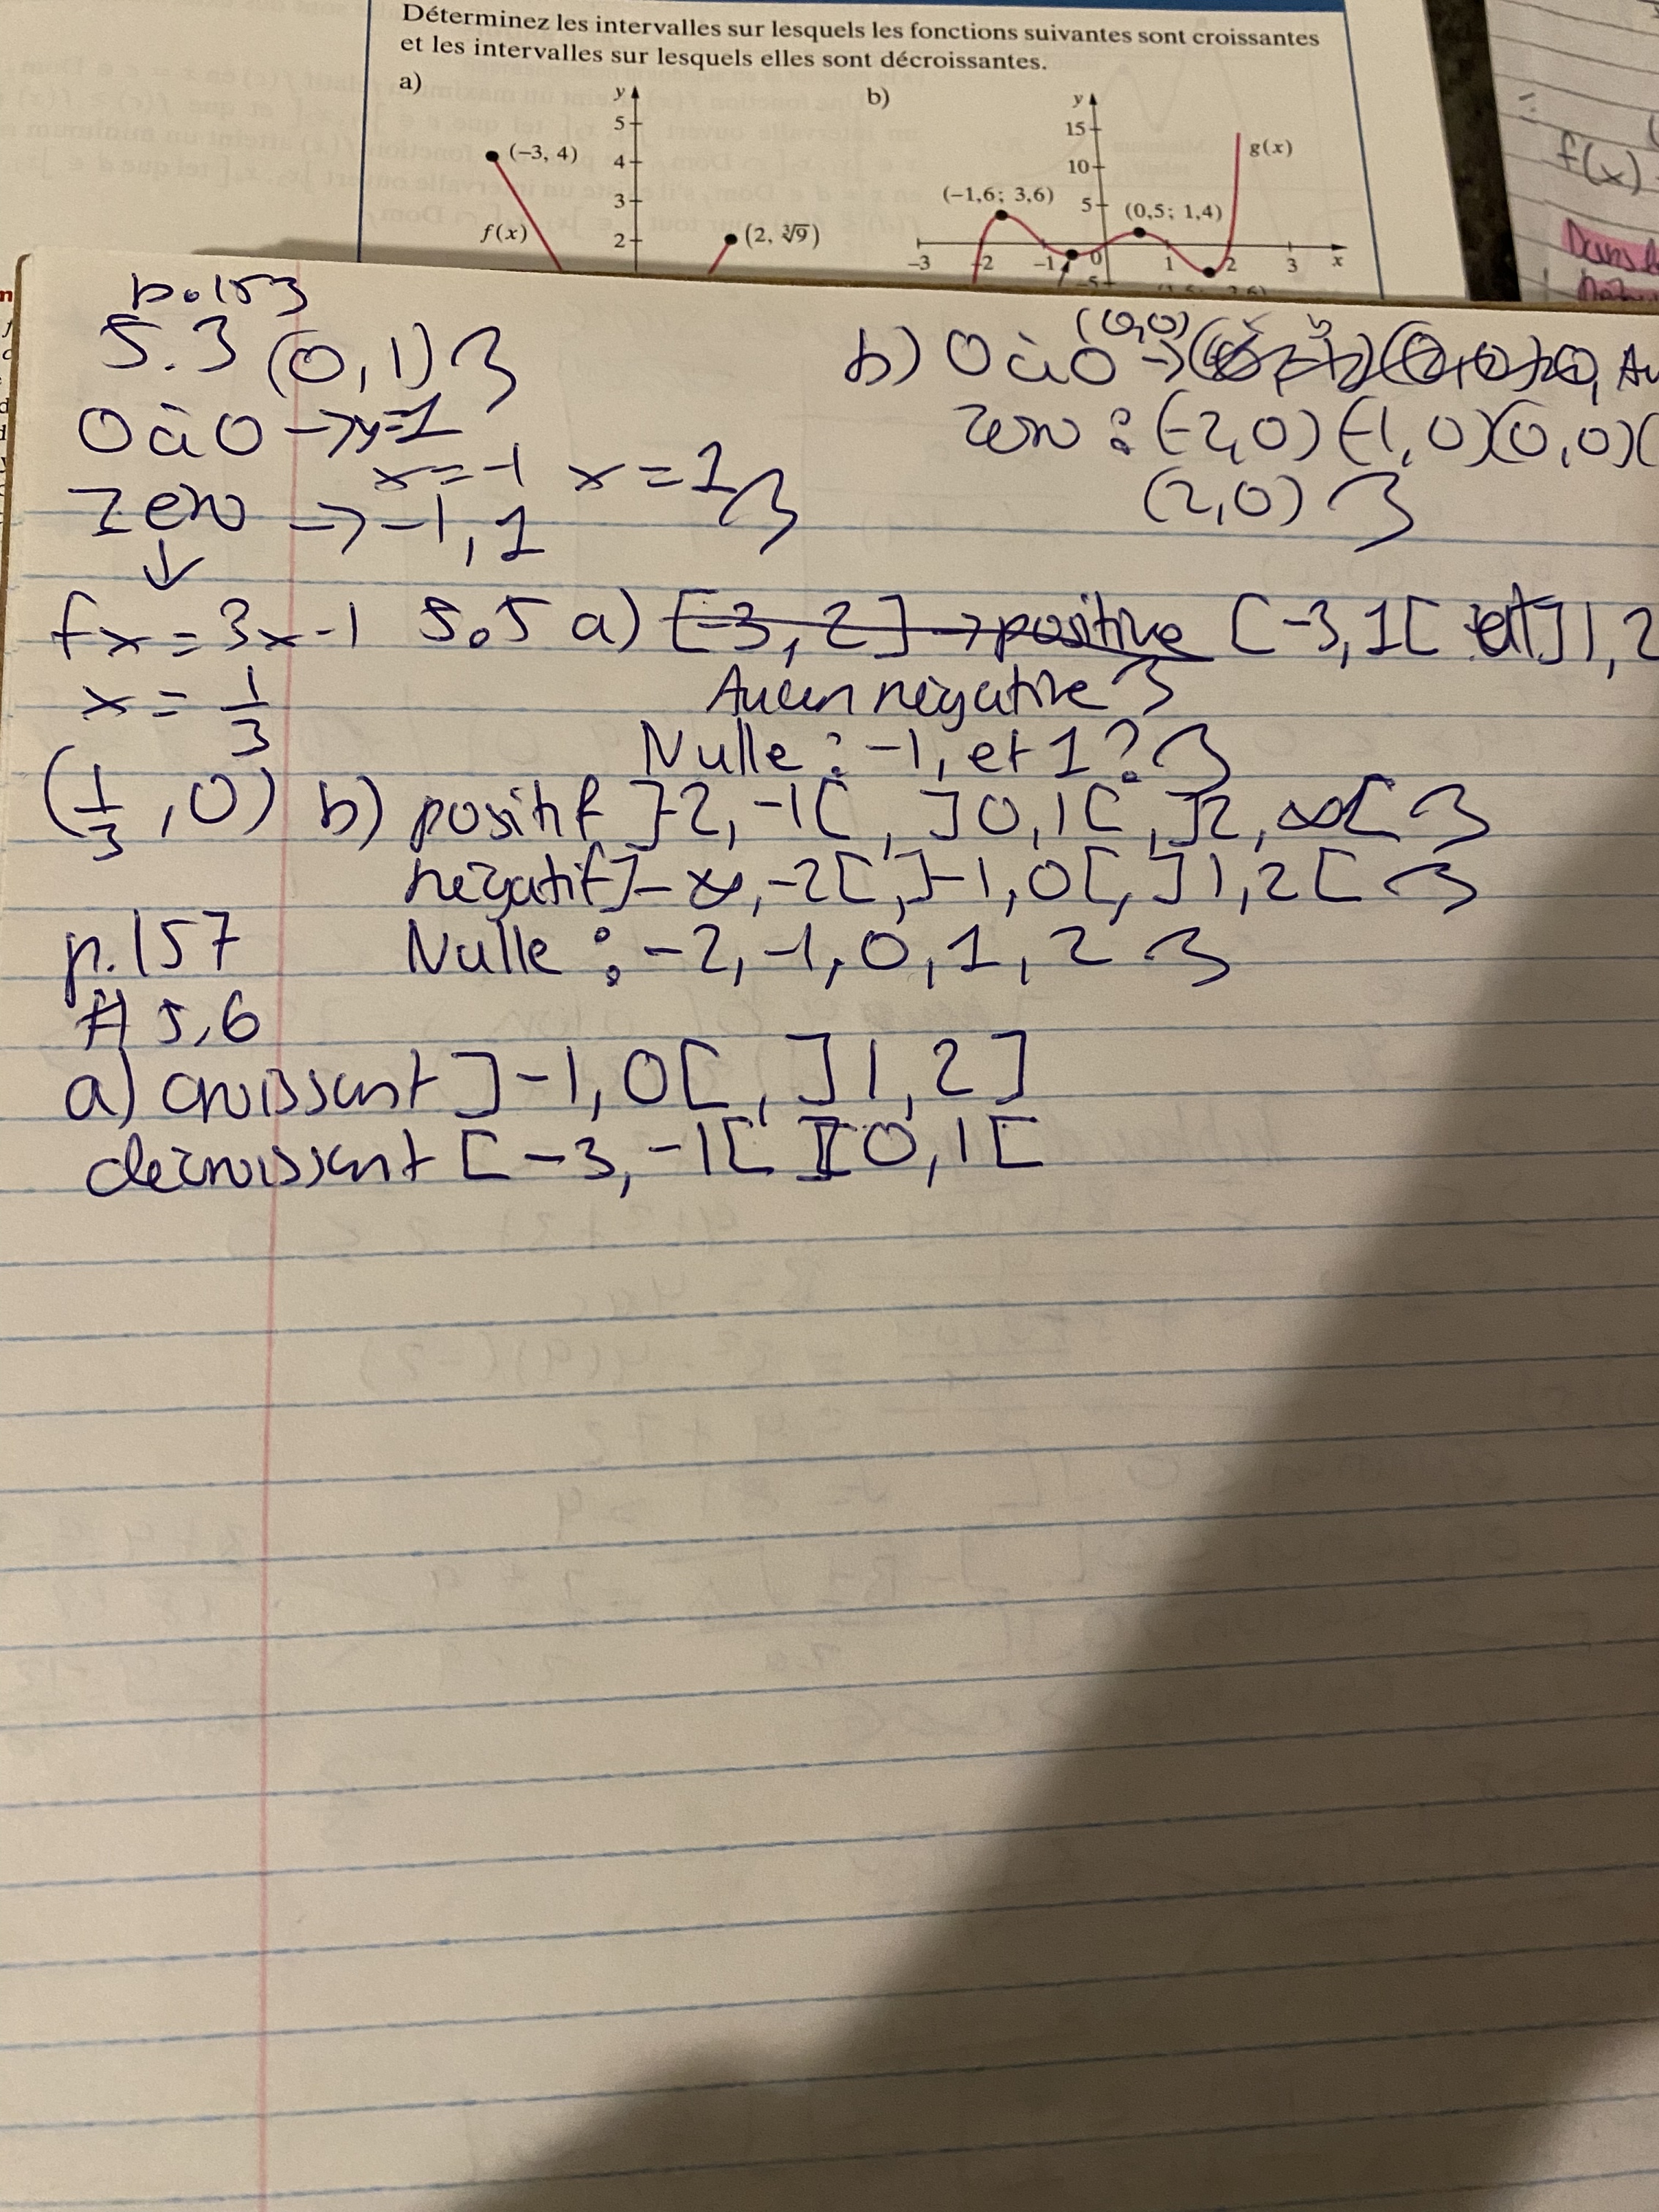 Déterminez les intervalles sur lesquels les fonctions suivantes sont croissantes
et les intervalles sur lesquels elles sont décroissantes.
a)
y
5
(–3, 4)
4
3
f(x)
2
(2, ∛9)
b)
y
15
g(x)
10
(–1,6; 3,6)
5
(0,5; 1,4)
–3
–2
–1
0
1
2
3
x
–5
f(x)
p.153
5.3 (0,1)
0 à 0 → y=1
x=-1 x=1
Zero → -1, 1
fx = 3x-1
x = 1/3
(1/3, 0)
b) 0 à 0 → (0,0)
Zero : (-2,0) (-1,0) (0,0) (
(2,0)
5.5 a) [-3, 2] → positive [-3,1[ et ]1,2
Aucun négative
Nulle : -1, et 1?
b) positif ]-2, -1[, ]0,1[, ]2, ∞[
négatif ]-∞, -2[, ]-1, 0[, ]1, 2[
Nulle : -2, -1, 0, 1, 2
p.157
# 5,6
a) croissant ]-1, 0[, ]1, 2]
décroissant [-3, -1[ ]0, 1[